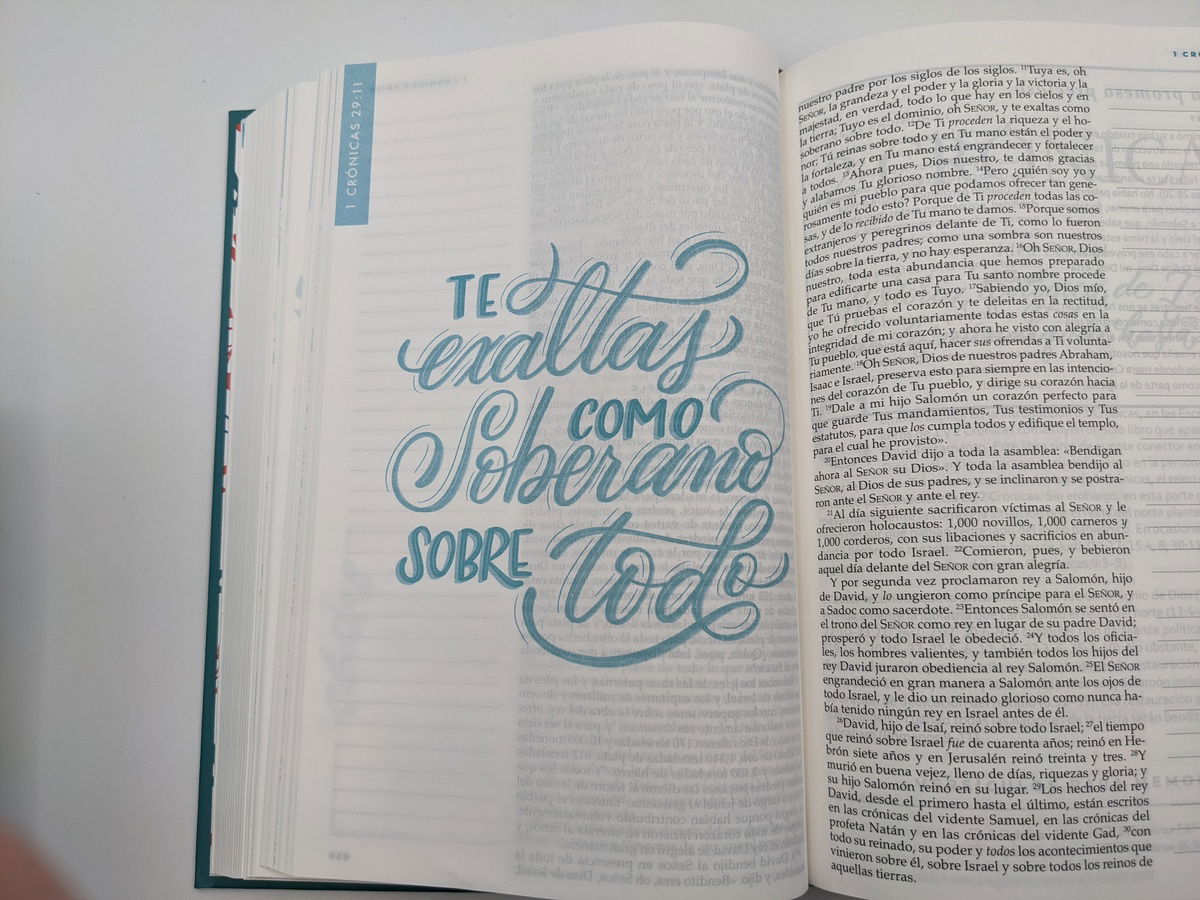 1 CRÓNICAS 29:11
TE
exaltas
COMO
Soberano
SOBRE todo
1 CRÓ
nuestro padre por los siglos de los siglos. 11Tuya es, oh
SEÑOR, la grandeza y el poder y la gloria y la victoria y la
majestad, en verdad, todo lo que hay en los cielos y en
la tierra; Tuyo es el dominio, oh SEÑOR, y te exaltas como
soberano sobre todo. 12De Ti proceden la riqueza y el ho-
nor; Tú reinas sobre todo y en Tu mano están el poder y
la fortaleza, y en Tu mano está engrandecer y fortalecer
a todos. 13Ahora pues, Dios nuestro, te damos gracias
y alabamos Tu glorioso nombre. 14Pero ¿quién soy yo y
quién es mi pueblo para que podamos ofrecer tan gene-
rosamente todo esto? Porque de Ti proceden todas las co-
sas, y de lo recibido de Tu mano te damos. 15Porque somos
extranjeros y peregrinos delante de Ti, como lo fueron
todos nuestros padres; como una sombra son nuestros
días sobre la tierra, y no hay esperanza. 16Oh SEÑOR, Dios
nuestro, toda esta abundancia que hemos preparado
para edificarte una casa para Tu santo nombre procede
de Tu mano, y todo es Tuyo. 17Sabiendo yo, Dios mío,
que Tú pruebas el corazón y te deleitas en la rectitud,
yo he ofrecido voluntariamente todas estas cosas en la
integridad de mi corazón; y ahora he visto con alegría a
Tu pueblo, que está aquí, hacer sus ofrendas a Ti volunta-
riamente. 18Oh SEÑOR, Dios de nuestros padres Abraham,
Isaac e Israel, preserva esto para siempre en las intencio-
nes del corazón de Tu pueblo, y dirige su corazón hacia
Ti. 19Dale a mi hijo Salomón un corazón perfecto para
que guarde Tus mandamientos, Tus testimonios y Tus
estatutos, para que los cumpla todos y edifique el templo,
para el cual he provisto».
20Entonces David dijo a toda la asamblea: «Bendigan
ahora al SEÑOR su Dios». Y toda la asamblea bendijo al
SEÑOR, al Dios de sus padres, y se inclinaron y se postra-
ron ante el SEÑOR y ante el rey.
21Al día siguiente sacrificaron víctimas al SEÑOR y le
ofrecieron holocaustos: 1,000 novillos, 1,000 carneros y
1,000 corderos, con sus libaciones y sacrificios en abun-
dancia por todo Israel. 22Comieron, pues, y bebieron
aquel día delante del SEÑOR con gran alegría.
Y por segunda vez proclamaron rey a Salomón, hijo
de David, y lo ungieron como príncipe para el SEÑOR, y
a Sadoc como sacerdote. 23Entonces Salomón se sentó en
el trono del SEÑOR como rey en lugar de su padre David;
prosperó y todo Israel le obedeció. 24Y todos los oficia-
les, los hombres valientes, y también todos los hijos del
rey David juraron obediencia al rey Salomón. 25El SEÑOR
engrandeció en gran manera a Salomón ante los ojos de
todo Israel, y le dio un reinado glorioso como nunca ha-
bía tenido ningún rey en Israel antes de él.
26David, hijo de Isaí, reinó sobre todo Israel; 27el tiempo
que reinó sobre Israel fue de cuarenta años; reinó en He-
brón siete años y en Jerusalén reinó treinta y tres. 28Y
murió en buena vejez, lleno de días, riquezas y gloria; y
su hijo Salomón reinó en su lugar. 29Los hechos del rey
David, desde el primero hasta el último, están escritos
en las crónicas del vidente Samuel, en las crónicas del
profeta Natán y en las crónicas del vidente Gad, 30con
todo su reinado, su poder y todos los acontecimientos que
vinieron sobre él, sobre Israel y sobre todos los reinos de
aquellas tierras.